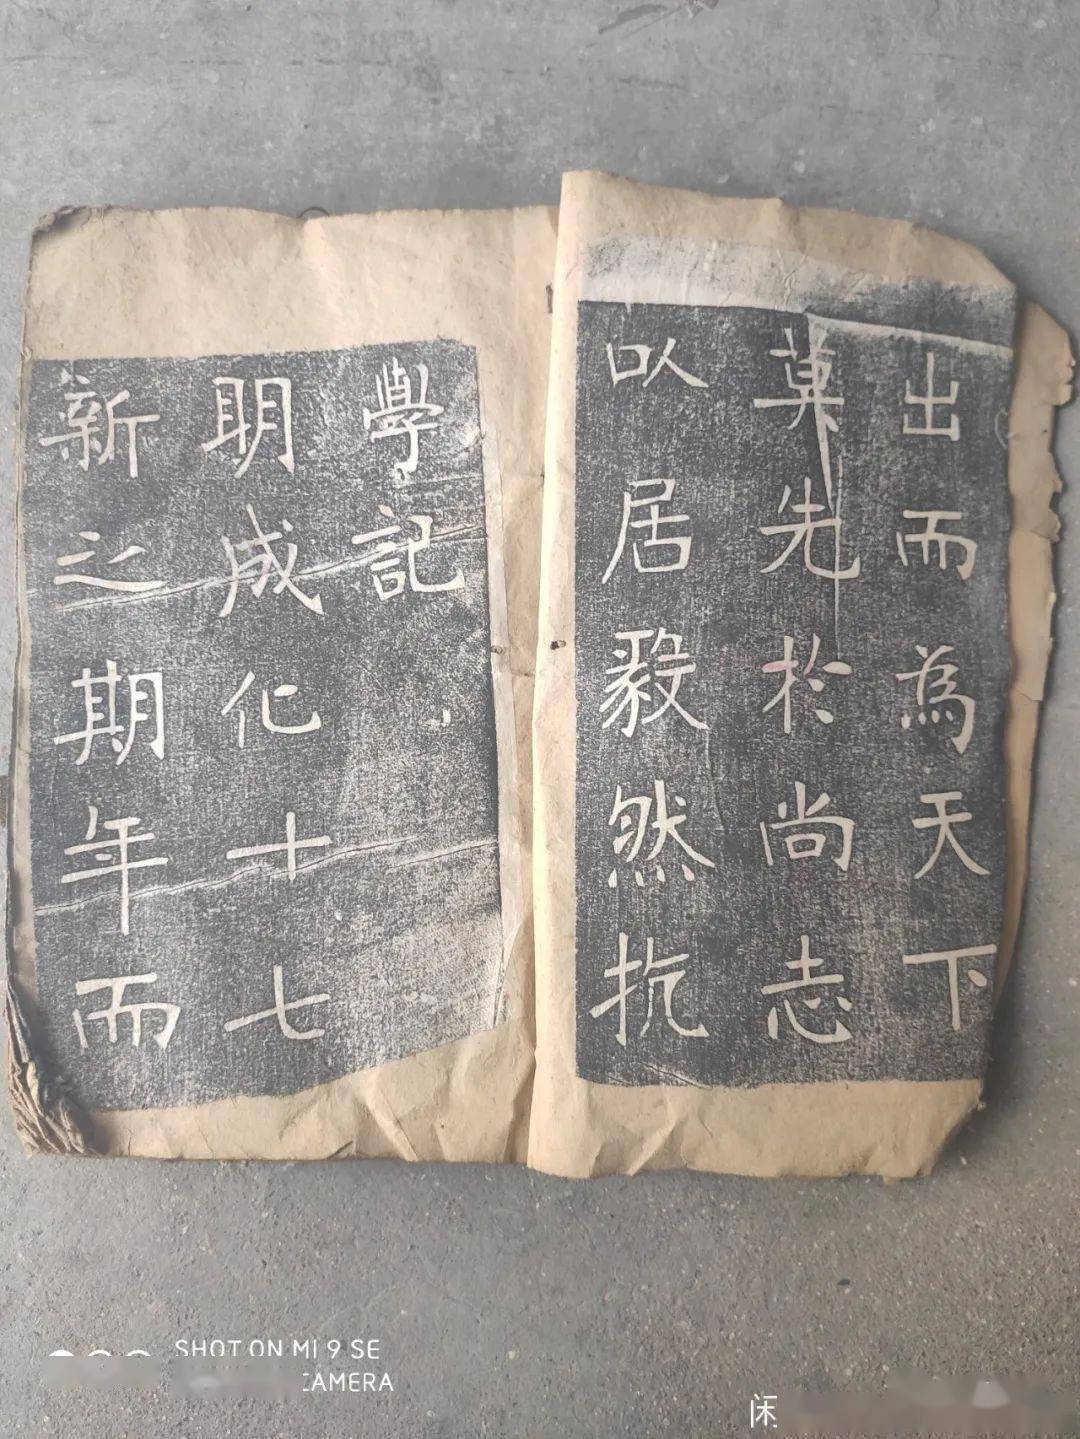 出而為天下
莫先於尚志
以居毅然抗
學記
明成化十七
新之期年而
SHOT ON MI 9 SE
CAMERA
闲